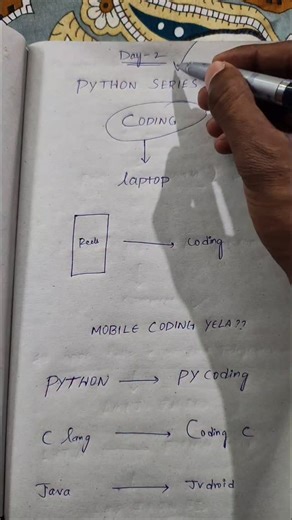 Day-2
PYTHON SERIES
CODING
laptop
Reels coding
MOBILE CODING YELA??
PYTHON PY coding
C lang Coding C
Java Jvdroid